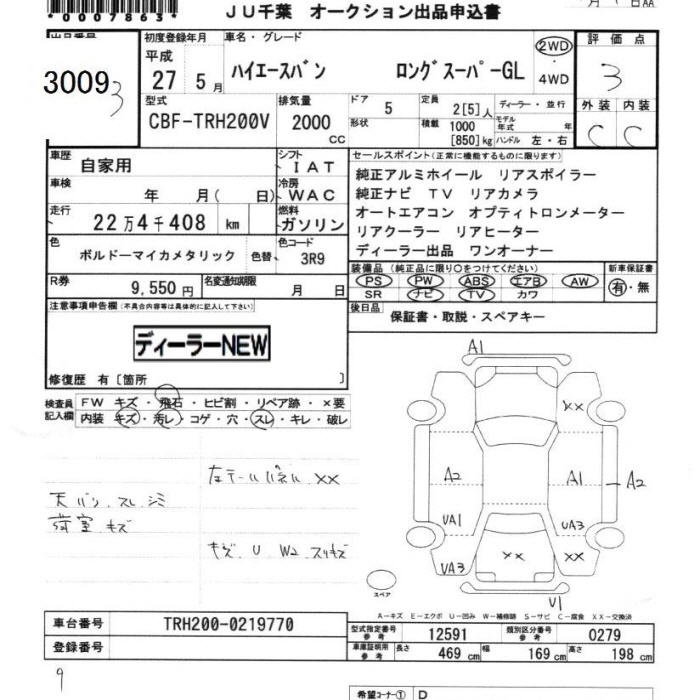 *0007863*
JU千葉 オークション出品申込書
出品番号 初度登録年月 車名・グレード 評価点
3009 平成 27 5月 ハイエースバン ロングスーパーGL 2WD・4WD 3
3
型式 排気量 ドア 5 定員 2[5]人 ディーラー・並行 外装 内装
CBF-TRH200V 2000cc 形状 積載 1000[850]kg モデル年式 年 ハンドル 左・右 C C
車歴 自家用 シフト IAT セールスポイント(正常に機能するものに限ります)
車検 年 月( 日) 冷房 WAC 純正アルミホイール リアスポイラー
走行 22万4千408 km 燃料 ガソリン 純正ナビ TV リアカメラ
オートエアコン オプティトロンメーター
色 ボルドーマイカメタリック 色替 色コード 3R9 リアクーラー リアヒーター
ディーラー出品 ワンオーナー
R券 9,550円 名変通知期限 月 日 装備品(純正品に限り○をつけてください) 新車保証書
PS PW ABS エアB AW 有・無
SR ナビ TV カワ
注意事項申告欄(不具合内容等は具体的に記入して下さい) 後日品 保証書・取説・スペアキー
ディーラーNEW
修復歴 有[箇所 ]
検査員記入欄 FW キズ・飛石・ヒビ割・リペア跡・×要
内装 キズ・汚レ・コゲ・穴・スレ・キレ・破レ
A1
××
左テールパネル ××
A2 A1 A2
天バリ スレ シミ
荷室 キズ
VA1 UA3
キズ U W2 スリキズ
×× ××
UA3
スペア
U1
A-キズ E-エクボ U-凹み W-補修跡 S-サビ C-腐食 XX-交換済
車台番号 TRH200-0219770 型式指定番号 参考 12591 類別区分番号 参考 0279
登録番号 車庫証明用 参考 長さ 469cm 幅 169cm 高さ 198cm
9
希望コーナー① D